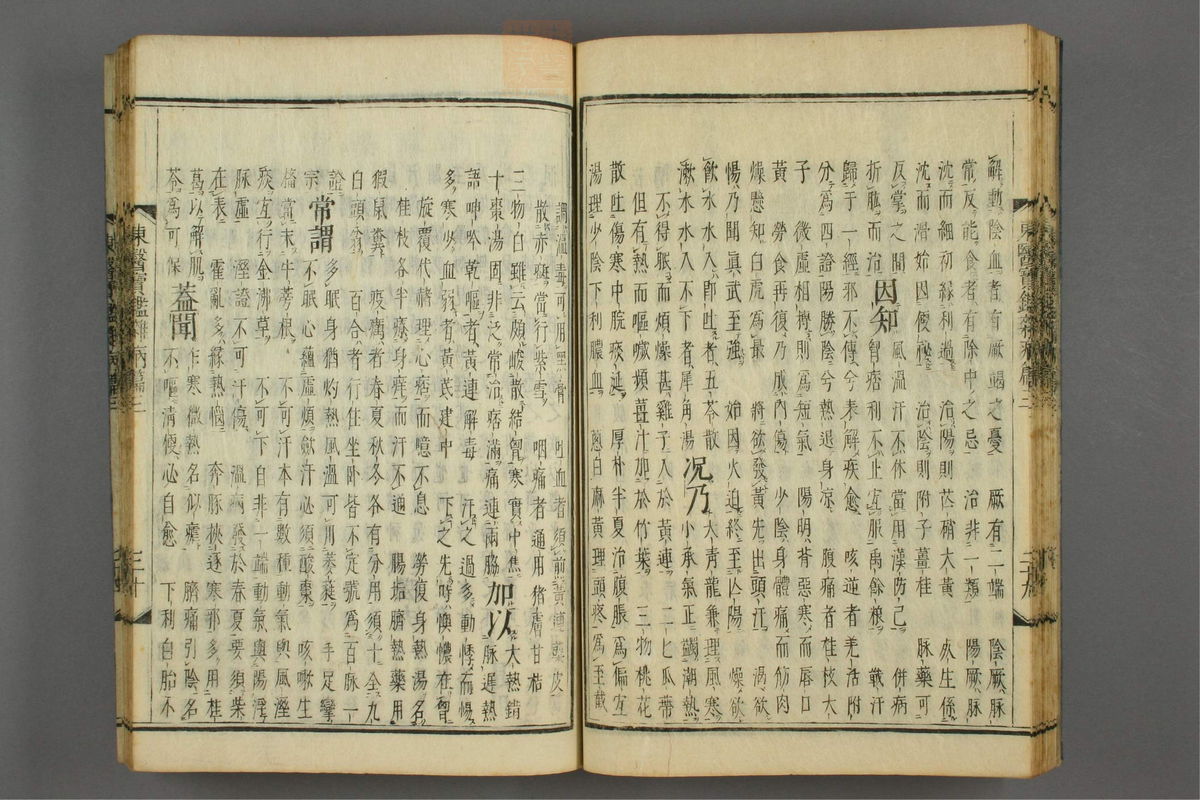 解動陰血者有厥竭之憂　厥有二端　陰厥脉
常反能食者有除中之忌　治非一類　陽厥脉
沈而細初緣利過　治陽則芒硝大黃　死生係
沈而滑始因便秘　治陰則附子薑桂　脉藥可
反掌之間　因知　風溫汗不休當用漢防己　併病
折肱而治　胷痞利不止宜服禹餘粮　戴汗
歸于一經邪不傳兮表解疾愈　咳逆者羌活附
分爲四證陽勝陰兮熱退身凉　腹痛者桂枝大
子　微虛相摶則爲短氣　陽明背惡寒而唇口
黃　勞食再復乃成內傷　少陰身體痛而筋肉
燥懸知白虎爲最　將欲發黃先出頭汗　渴欲
惕乃聞眞武至強　始因火迫終至亡陽　燥欲
飮水水入卽吐者五苓散　況乃　大青龍兼理風寒
漱水水入不下者犀角湯　小承氣正蠲潮熱
不得眠而煩燥甚雞子入於黃連　二七瓜帶
但有熱而嘔噦頻薑汁加於竹葉　三物桃花
散吐傷寒中脘痰涎　厚朴半夏治腹脹爲偏宜
湯理少陰下利膿血　葱白麻黃理頭疼爲至截
調溫毒可用黑膏　吐血者須煎黃連蘗皮
散赤癍當行紫雪　咽痛者通用猪膚甘桔
三物白雖云頗峻散結胷寒實中焦　加以　大熱錯
十棗湯固非泛常治痞滿痛連兩脇　脉遲熱
語呻吟乾嘔者黃連解毒　汗之過多動悸而惕
多寒少血弱者黃芪建中　下之先時懊憹在胷
旋覆代赭理心痞而噫不息　勞復身熱湯名
桂枝各半療身痒而汗不通　腸垢臍熱藥用
猳鼠糞　疫癘者春夏秋冬各有分用須十全九
白頭翁　百合者行住坐卧皆不定號爲百脉一
證　常謂　多眠身猶灼熱風溫可用葳蕤　手足攣
宗　不眠心蘊虛煩斂汗必須酸棗　咳嗽生
搐當末牛蒡根　不可汗本有數種動氣與風溼
痰宜行金沸草　不可下自非一端動氣與陽浮
脉虛　溼證不可汗傷　溫病發於春夏要須柴
在表　霍亂多緣熱惱　奔豚挾逐寒邪多用桂
葛以解肌　乍寒微熱名似瘧　臍痛引陰名
苓爲可保　蓋聞　不嘔清便必自愈　下利白胎不
東醫寶鑑雜病篇二　三十